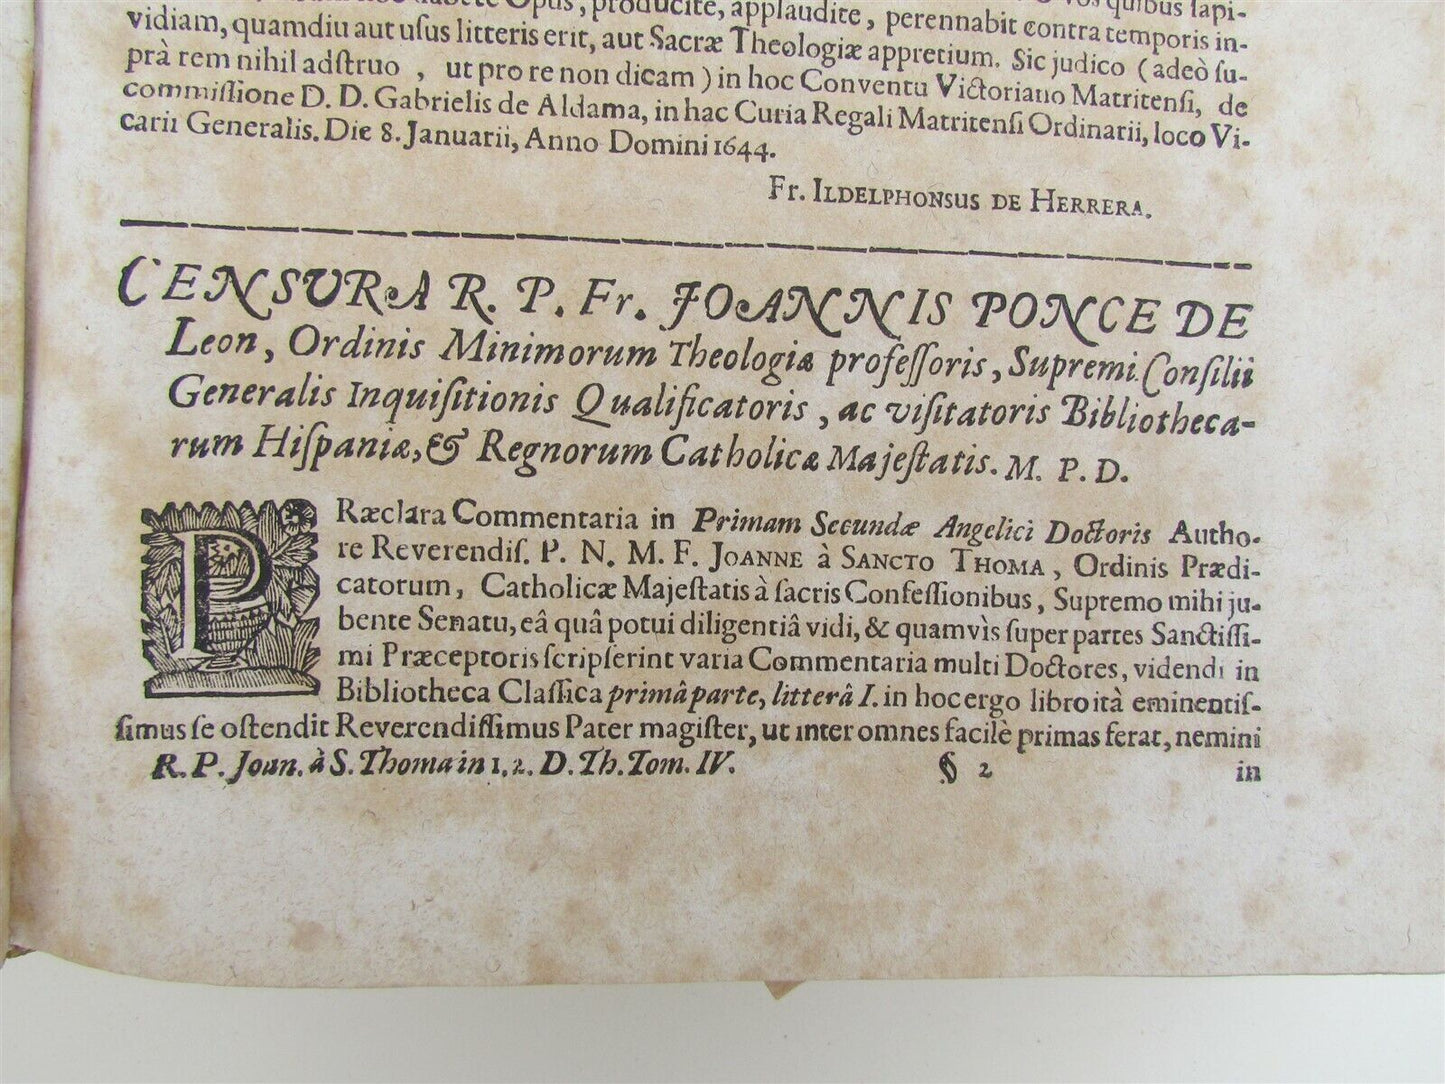 Opus, producite, applaudite, perennabit contra temporis in-
vidiam, quamdiu aut usus litteris erit, aut Sacræ Theologiæ appretium. Sic judico (adeò ſu-
prà rem nihil adſtruo, ut pro re non dicam) in hoc Conventu Victoriano Matritenſi, de
commiſſione D. D. Gabrielis de Aldama, in hac Curia Regali Matritenſi Ordinarii, loco Vi-
carii Generalis. Die 8. Januarii, Anno Domini 1644.
Fr. ILDELPHONSUS DE HERRERA.
CENSURA R. P. Fr. JOANNIS PONCE DE
Leon, Ordinis Minimorum Theologiæ profeſſoris, Supremi Conſilii
Generalis Inquiſitionis Qualificatoris, ac viſitatoris Bibliotheca-
rum Hiſpaniæ, & Regnorum Catholicæ Majeſtatis. M. P. D.
PRæclara Commentaria in Primam Secundæ Angelici Doctoris Autho-
re Reverendiſ. P. N. M. F. JOANNE à SANCTO THOMA, Ordinis Prædi-
catorum, Catholicæ Majeſtatis à ſacris Confeſſionibus, Supremo mihi ju-
bente Senatu, eâ quâ potui diligentiâ vidi, & quamvìs ſuper partes Sanctiſſi-
mi Præceptoris ſcripſerint varia Commentaria multi Doctores, videndi in
Bibliotheca Claſſica primâ parte, litterâ I. in hoc ergo libro ità eminentiſ-
ſimus ſe oſtendit Reverendiſſimus Pater magiſter, ut inter omnes facilè primas ferat, nemini
R. P. Joan. à S. Thoma in 1. 2. D. Th. Tom. IV. § 2 in